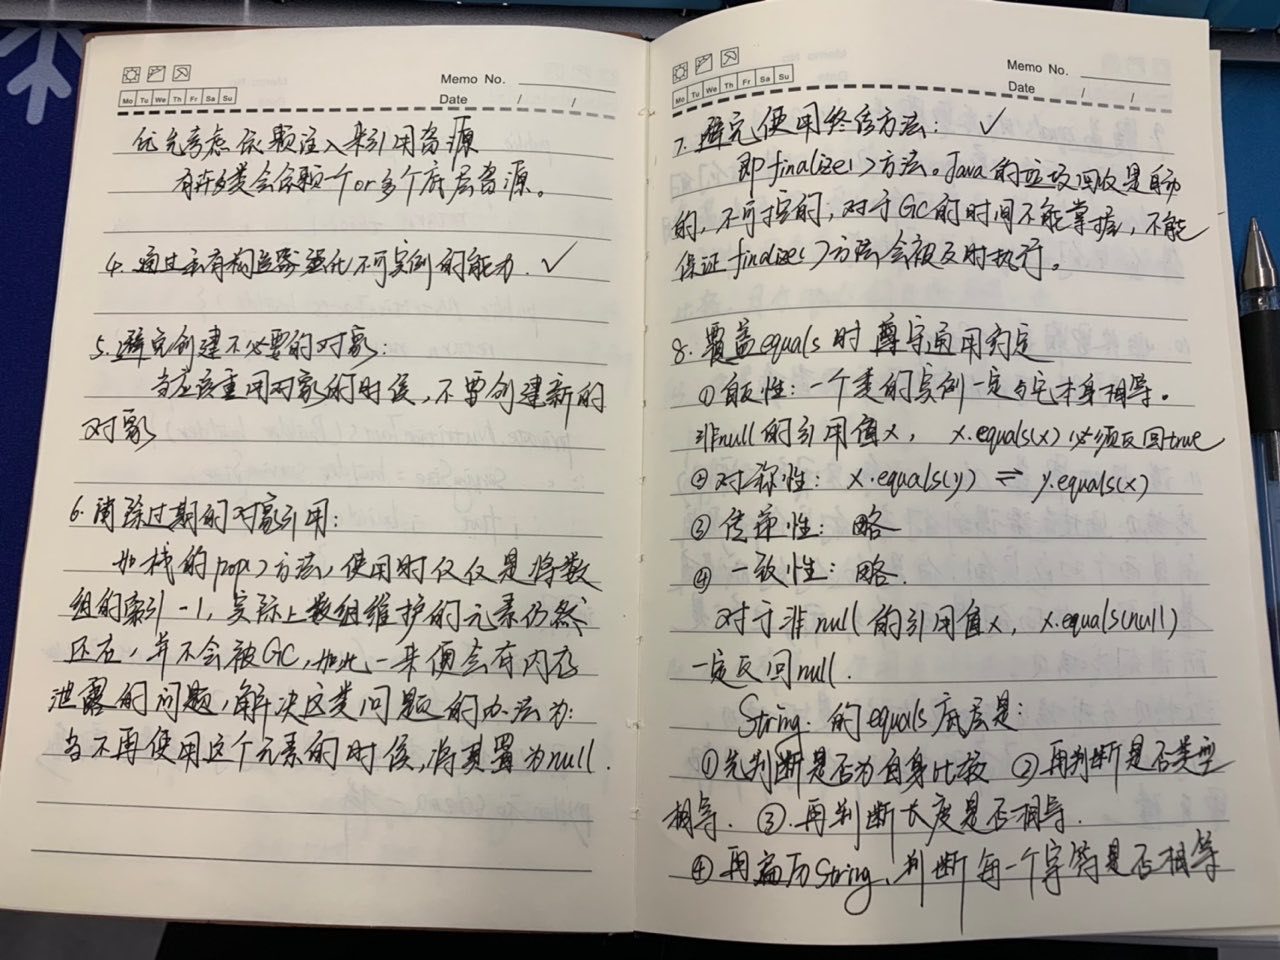 Memo No.
Mo Tu We Th Fr Sa Su
Date / /
优先考虑依赖注入来引用资源
有许多类会依赖一个or多个底层资源。
4. 通过私有构造器强化不可实例的能力. ✓
5. 避免创建不必要的对象:
当应该重用对象的时候, 不要创建新的
对象
6. 消除过期的对象引用:
如栈的pop()方法, 使用时仅仅是将数
组的索引-1, 实际上数组维护的元素仍然
还在, 并不会被GC, 如此一来便会有内存
泄露的问题, 解决这类问题的办法为:
当不再使用这个元素的时候, 将其置为null.
Memo No.
Mo Tu We Th Fr Sa Su
Date / /
7. 避免使用终结方法: ✓
即finalize()方法。Java的垃圾回收是自动
的, 不可控的, 对于GC的时间不能掌握, 不能
保证finalize()方法会被及时执行。
8. 覆盖equals时尊守通用约定
① 自反性: 一个类的实例一定与它本身相等。
非null的引用值x, x.equals(x)必须反回true
② 对称性: x.equals(y) ⇌ y.equals(x)
③ 传递性: 略
④ 一致性: 略.
对于非null的引用值x, x.equals(null)
一定反回null.
String. 的equals底层是:
①先判断是否为自身比较 ②再判断是否类型
相等. ③.再判断长度是否相等.
④再遍历String, 判断每一个字符是否相等